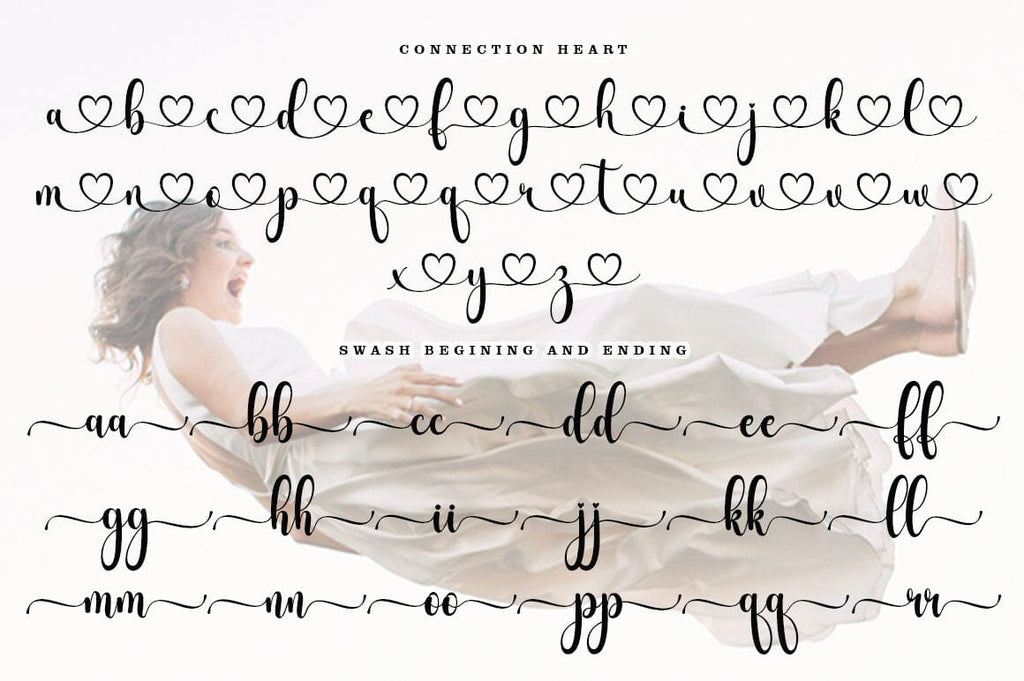 CONNECTION HEART
a b c d e f g h i j k l
m n o p q q r t u v v w
x y z
SWASH BEGINING AND ENDING
aa bb cc dd ee ff
gg hh ii jj kk ll
mm nn oo pp qq rr